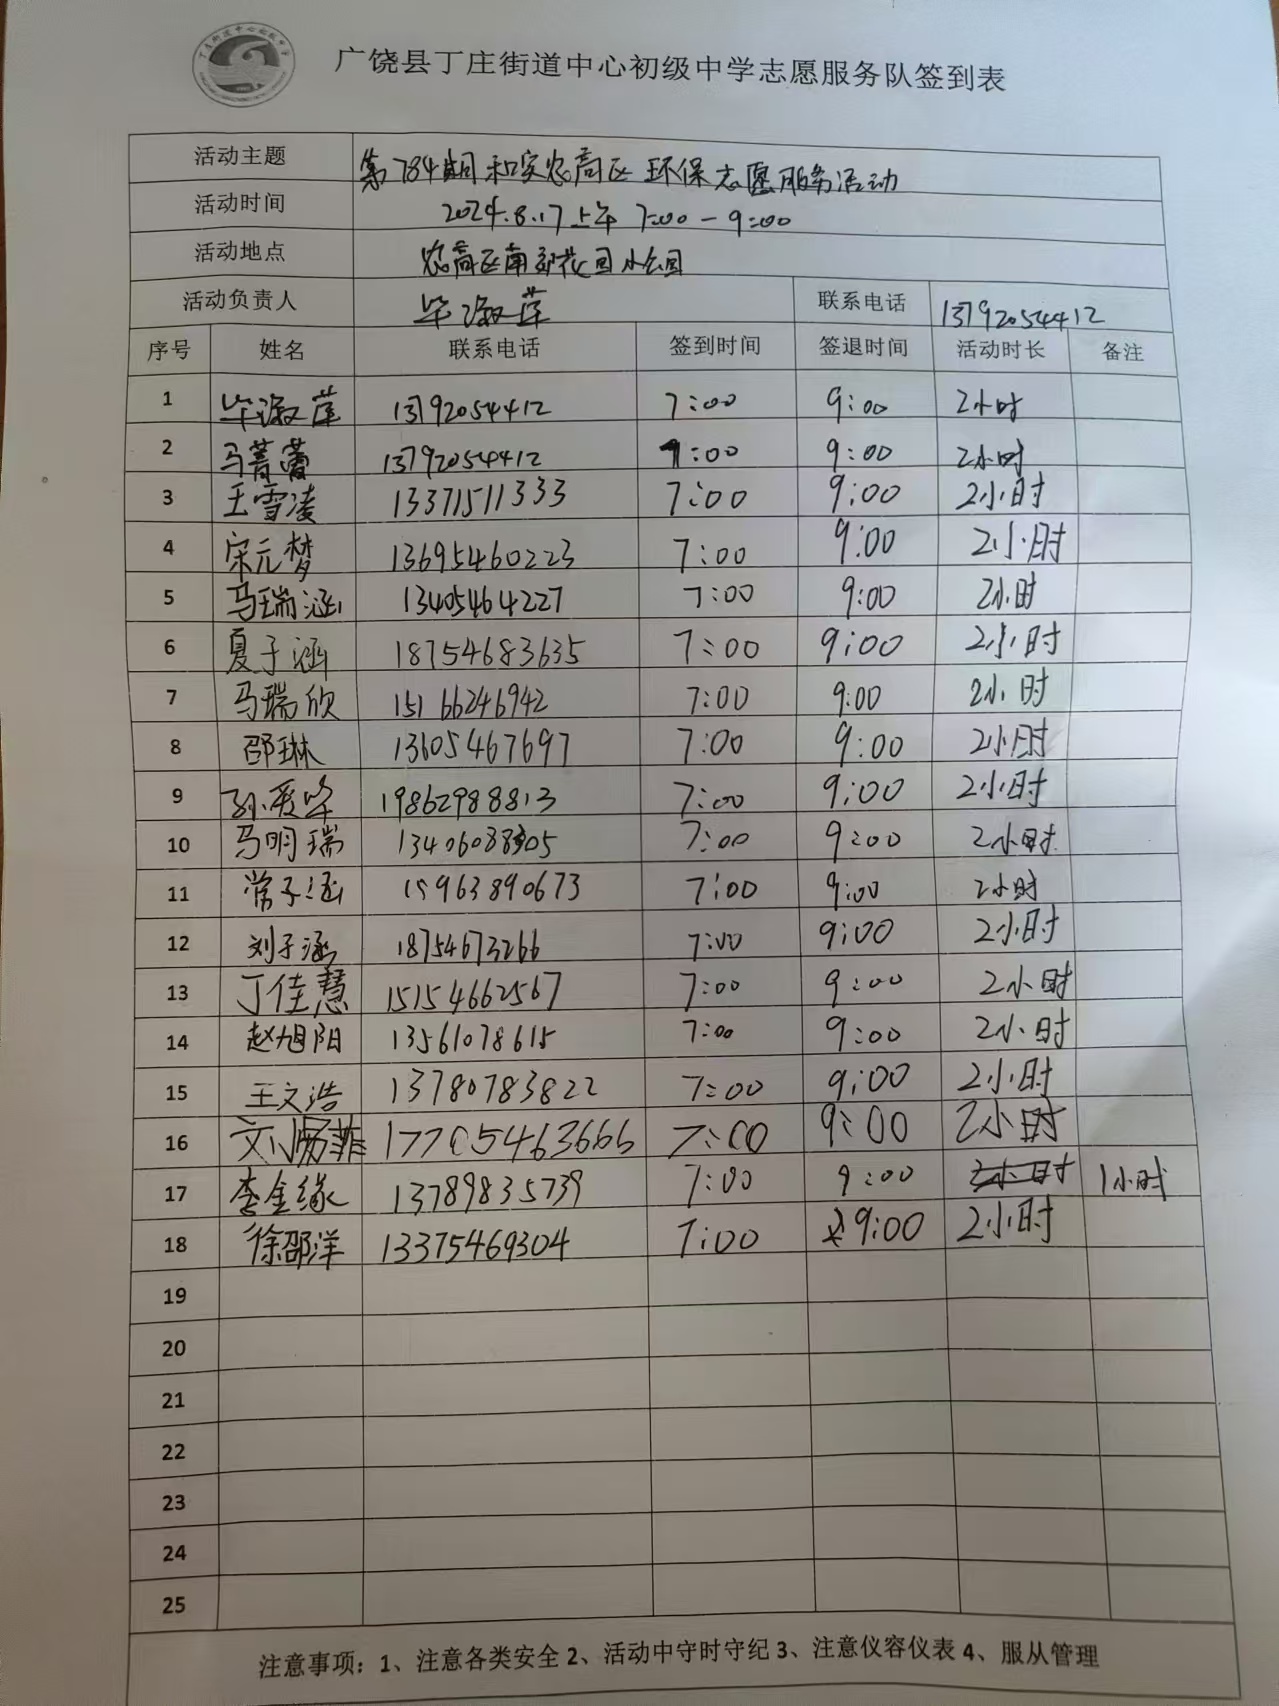 广饶县丁庄街道中心初级中学志愿服务队签到表
活动主题 第784期和实农高区环保志愿服务活动
活动时间 2024.8.17上午 7:00-9:00
活动地点 农高区南郊花园小公园
活动负责人 毕淑莲 联系电话 13792054412
序号 姓名 联系电话 签到时间 签退时间 活动时长 备注
1 毕淑莲 13792054412 7:00 9:00 2小时
2 马菁蕾 13792054412 7:00 9:00 2小时
3 王雪凌 13371511333 7:00 9:00 2小时
4 宋元梦 13695460223 7:00 9:00 2小时
5 马瑞涵 13405464227 7:00 9:00 2小时
6 夏子涵 18754683635 7:00 9:00 2小时
7 马瑞欣 15166246942 7:00 9:00 2小时
8 邵琳 13605467697 7:00 9:00 2小时
9 孙爱华 19862988813 7:00 9:00 2小时
10 马明瑞 13406088305 7:00 9:00 2小时
11 常子涵 15963890673 7:00 9:00 2小时
12 刘子涵 18754673266 7:00 9:00 2小时
13 丁佳慧 15154662567 7:00 9:00 2小时
14 赵旭阳 13561078615 7:00 9:00 2小时
15 王文浩 13780783822 7:00 9:00 2小时
16 17705463666 7:00 9:00 2小时
17 李金缘 13789835739 7:00 9:00 1小时
18 徐邵洋 13375469304 7:00 9:00 2小时
19
20
21
22
23
24
25
注意事项：1、注意各类安全 2、活动中守时守纪 3、注意仪容仪表 4、服从管理